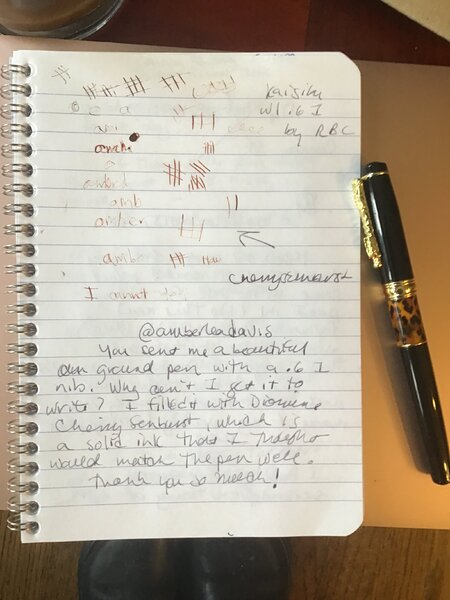 Kaigelu
w/ .6 I
by RBC
a
ami
amb
amber
ambe
Cherry Sunburst
I cannot
@amberleadavis
You sent me a beautiful
ground pen with a .6 I
nib. Why can't I get it to
write? I filled it with Diamine
Cherry Sunburst, which is
a solid ink that I
would match the pen well.
Thank you so much!